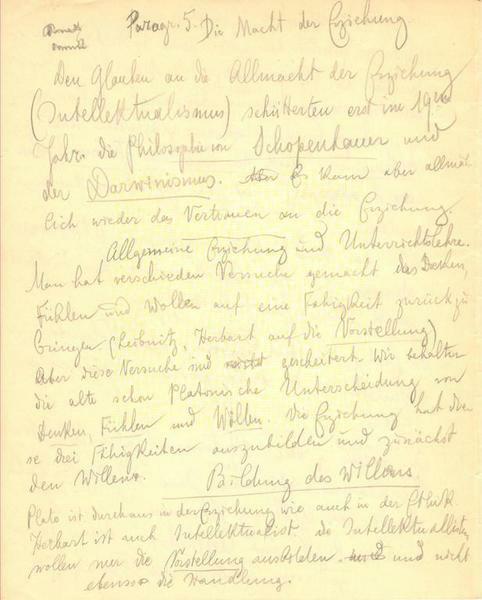 Paragr. 5. Die Macht der Erziehung
Den Glauben an die Allmacht der Erziehung
(Intellektualismus) schütterten erst im 19ten
Jahr. die Philosophie von Schopenhauer und
der Darwinismus. Aber Es kam aber allmäh
lich wieder das Vertrauen an die Erziehung.
Allgemeine Erziehung und Unterrichtslehre.
Man hat verschieden Versuche gemacht das Denken,
Fühlen und Wollen auf eine Fähigkeit zurück zu
bringen (Leibnitz, Herbart auf die Vorstellung)
Aber diese Versuche sind gescheitert. Wir behalten
die alte schon Platonische Unterscheidung von
Denken, Fühlen und Wollen. Die Erziehung hat die
se drei Fähigkeiten auszubilden und zunächst
den Willen.
Bildung des Willens
Plato ist durchaus in der Erziehung wie auch in der Ethik
Herbart ist auch Intellektualist. die Intellektualisten
wollen nur die Vorstellung ausbilden und nicht
ebenso die Handlung.